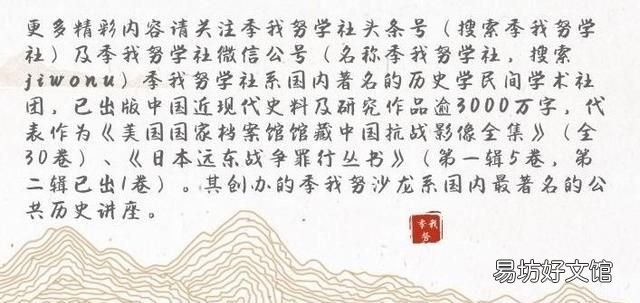 更多精彩内容请关注季我努学社头条号（搜索季我努学
社）及季我努学社微信公号（名称季我努学社，搜索
jiwonu）季我努学社系国内著名的历史学民间学术社
团，已出版中国近现代史料及研究作品逾3000万字，代
表作为《美国国家档案馆馆藏中国抗战影像全集》（全
30卷）、《日本远东战争罪行丛书》（第一辑5卷，第
二辑已出1卷）。其创办的季我努沙龙系国内最著名的公
共历史讲座。
季我
努
易坊好文馆